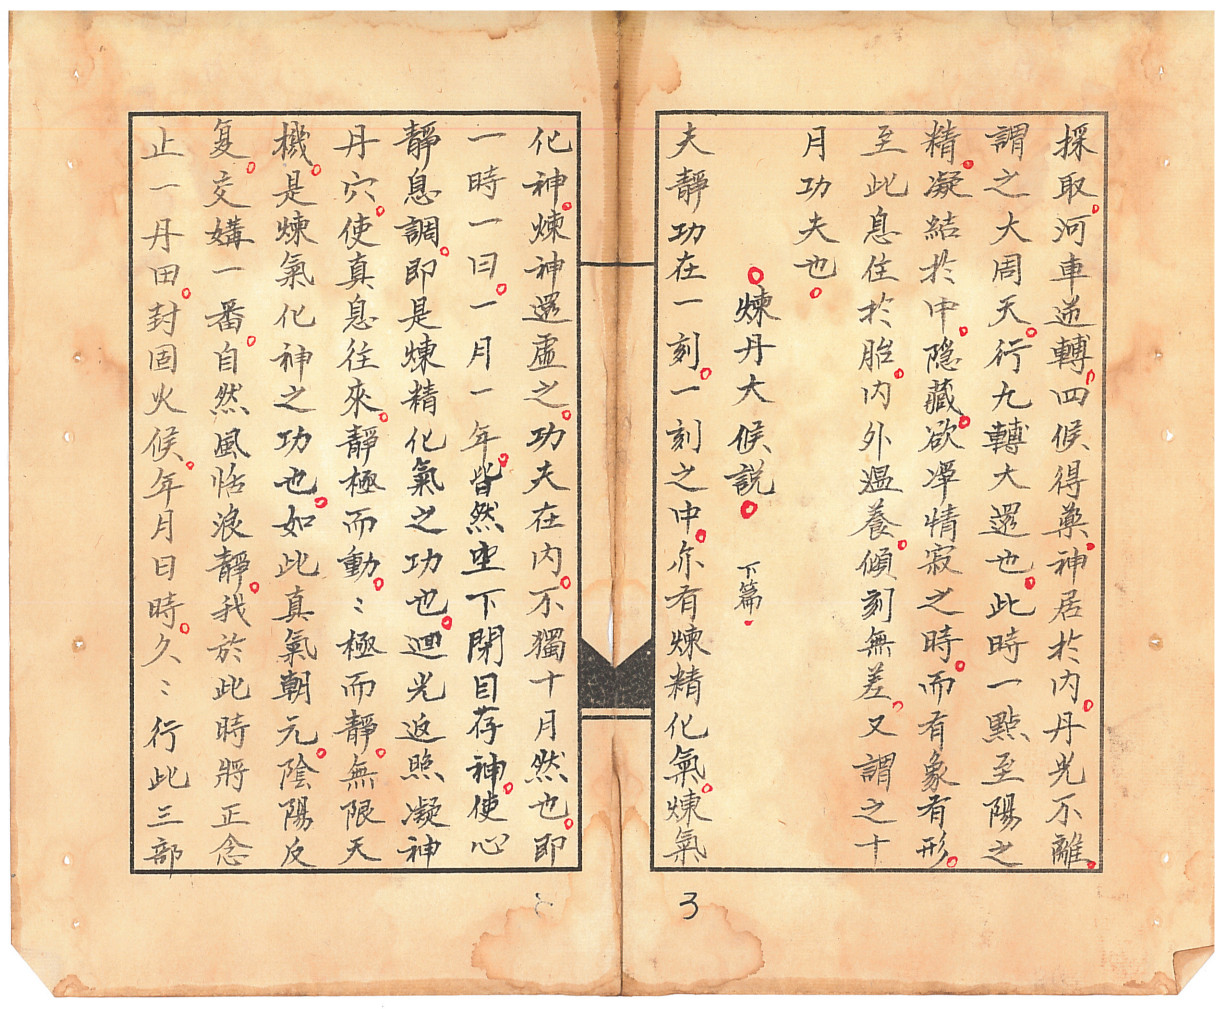 採取。河車逆轉。四候得藥。神居於內。丹光不離。
謂之大周天。行九轉大還也。此時一點至陽之
精。凝結於中。隱藏。欲淨情寂之時。而有象有形。
至此息住於胎。內外溫養。傾刻無差。又謂之十
月功夫也。
。煉丹大候說。 下篇.
夫靜功在一刻。一刻之中。亦有煉精化氣。煉氣
化神。煉神還虛之。功夫在內。不獨十月然也。即
一時一日。一月一年。皆然坐下閉目存神。使心
靜息調。即是煉精化氣之功也。迴光返照凝神
丹穴。使真息往來。靜極而動。〻極而靜。無限天
機。是煉氣化神之功也。如此真氣朝元。陰陽反
复。交媾一番。自然風恬浪靜。我於此時將正念
止一丹田。封固火候。年月日時。久〻行此三部
3